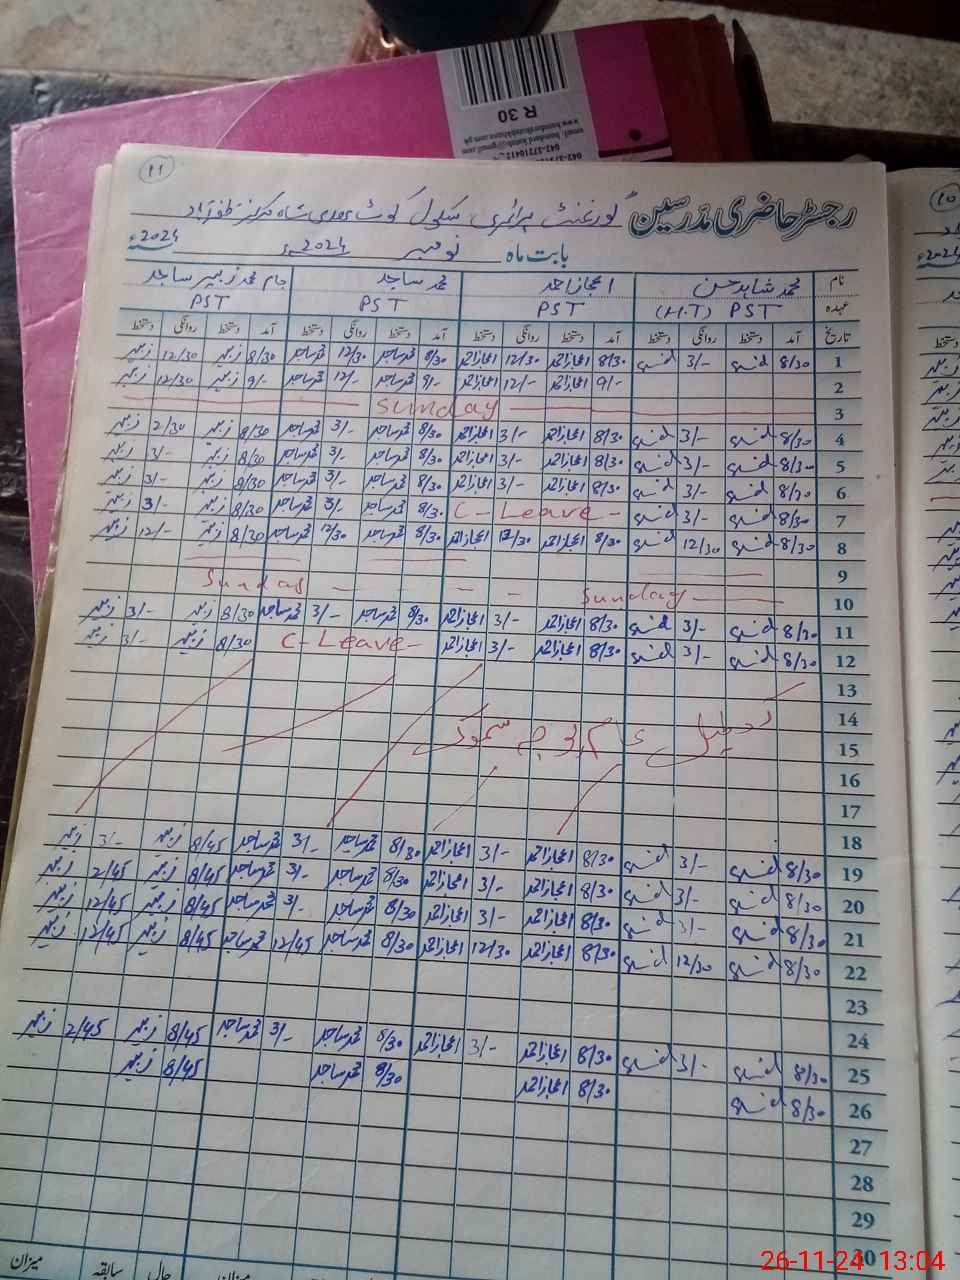 R 30
www.hamdardkutabkhana.com.pk
۱۱
رجسٹر حاضری مدرسین گورنمنٹ پرائمری سکول کوٹ مہدی شاہ مرکز ظفرآباد
بابت ماہ نومبر 2024ء 2024ء
نام محمد شاہد حسن اعجاز احمد محمد ساجد جام محمد زبیر ساجد
عہدہ (H.T) PST PST PST PST
تاریخ آمد دستخط روانگی دستخط آمد دستخط روانگی دستخط آمد دستخط روانگی دستخط آمد دستخط روانگی دستخط
1 8/30 3/- 8/30 اعجاز احمد 12/30 اعجاز احمد 8/30 محمد ساجد 12/30 محمد ساجد 8/30 زبیر 12/30 زبیر
2 9/- اعجاز احمد 12/- اعجاز احمد 9/- محمد ساجد 12/- محمد ساجد 9/- زبیر 12/30 زبیر
3 Sunday
4 8/30 3/- 8/30 اعجاز احمد 3/- اعجاز احمد 8/30 محمد ساجد 3/- محمد ساجد 8/30 زبیر 2/30 زبیر
5 8/30 3/- 8/30 اعجاز احمد 3/- اعجاز احمد 8/30 محمد ساجد 3/- محمد ساجد 8/30 زبیر 3/- زبیر
6 8/30 3/- 8/30 اعجاز احمد 3/- اعجاز احمد 8/30 محمد ساجد 3/- محمد ساجد 8/30 زبیر 3/- زبیر
7 8/30 3/- C-Leave- 8/30 محمد ساجد 3/- محمد ساجد 8/30 زبیر 3/- زبیر
8 8/30 12/30 8/30 اعجاز احمد 12/30 اعجاز احمد 8/30 محمد ساجد 12/30 محمد ساجد 8/30 زبیر 12/- زبیر
9
10 Sunday Sunday
11 8/30 3/- 8/30 اعجاز احمد 3/- اعجاز احمد 8/30 محمد ساجد 3/- محمد ساجد 8/30 زبیر 3/- زبیر
12 8/30 3/- 8/30 اعجاز احمد 3/- اعجاز احمد C-Leave- 8/30 زبیر 3/- زبیر
13
14
تعطیل عام بوجہ سموگ
15
16
17
18
19 8/30 3/- 8/30 اعجاز احمد 3/- اعجاز احمد 8/30 محمد ساجد 3/- محمد ساجد 8/45 زبیر 3/- زبیر
20 8/30 3/- 8/30 اعجاز احمد 3/- اعجاز احمد 8/30 محمد ساجد 3/- محمد ساجد 8/45 زبیر 2/45 زبیر
21 8/30 3/- 8/30 اعجاز احمد 3/- اعجاز احمد 8/30 محمد ساجد 3/- محمد ساجد 8/45 زبیر 12/45 زبیر
22 8/30 12/30 8/30 اعجاز احمد 12/30 اعجاز احمد 8/30 محمد ساجد 12/45 محمد ساجد 8/45 زبیر 12/45 زبیر
23
24
25 8/30 3/- 8/30 اعجاز احمد 3/- اعجاز احمد 8/30 محمد ساجد 3/- محمد ساجد 8/45 زبیر 2/45 زبیر
26 8/30 8/30 اعجاز احمد 8/30 محمد ساجد 8/45 زبیر
27
28
29
30
میزان حالی سابقہ میزان
26-11-24 13:04